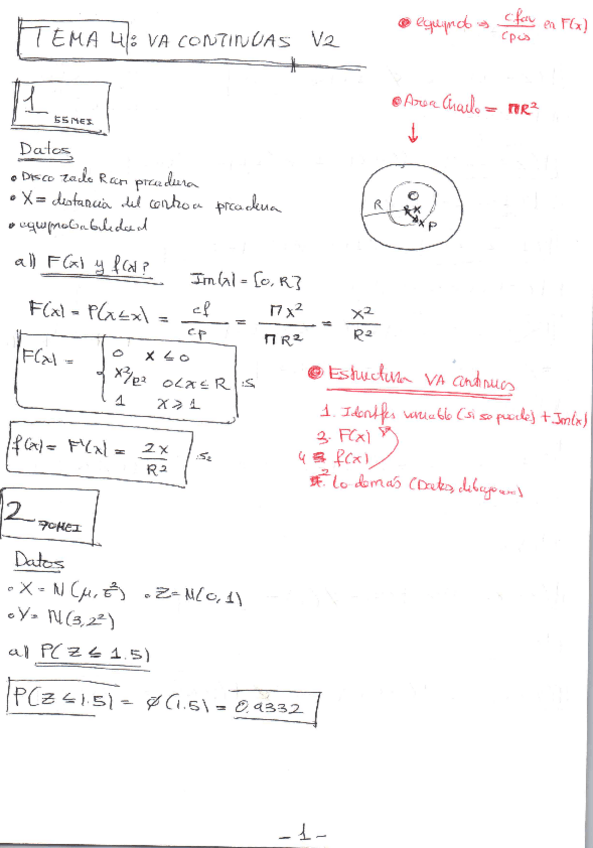 TEMA 4: VA CONTINUAS V2
• equiprob ⇒ cfav/cpos en F(x)
1
55MEI
• Area Círculo = πR²
↓
Datos
• Disco radio R con picadura
• X = distancia del centro a picadura
• equiprobabilidad
R
O
x
P
a) F(x) y f(x)?
Im(x) = [0, R]
F(x) = P(X ≤ x) = cf/cp = πx²/πR² = x²/R²
F(x) = { 0 x ≤ 0
x²/R² 0 < x ≤ R
1 x ≥ 1
f(x) = F'(x) = 2x/R²
• Estructura VA continuas
1. Identifcs variable (si se puede) + Im(x)
3. F(x)
4 f(x)
2 Lo demás (Datos, dibujo
2
70MEI
Datos
• X = N(μ, σ²) • Z = N(0, 1)
• Y = N(3, 2²)
a) P(Z ≤ 1.5)
P(Z ≤ 1.5) = φ(1.5) = 0.9332
- 1 -